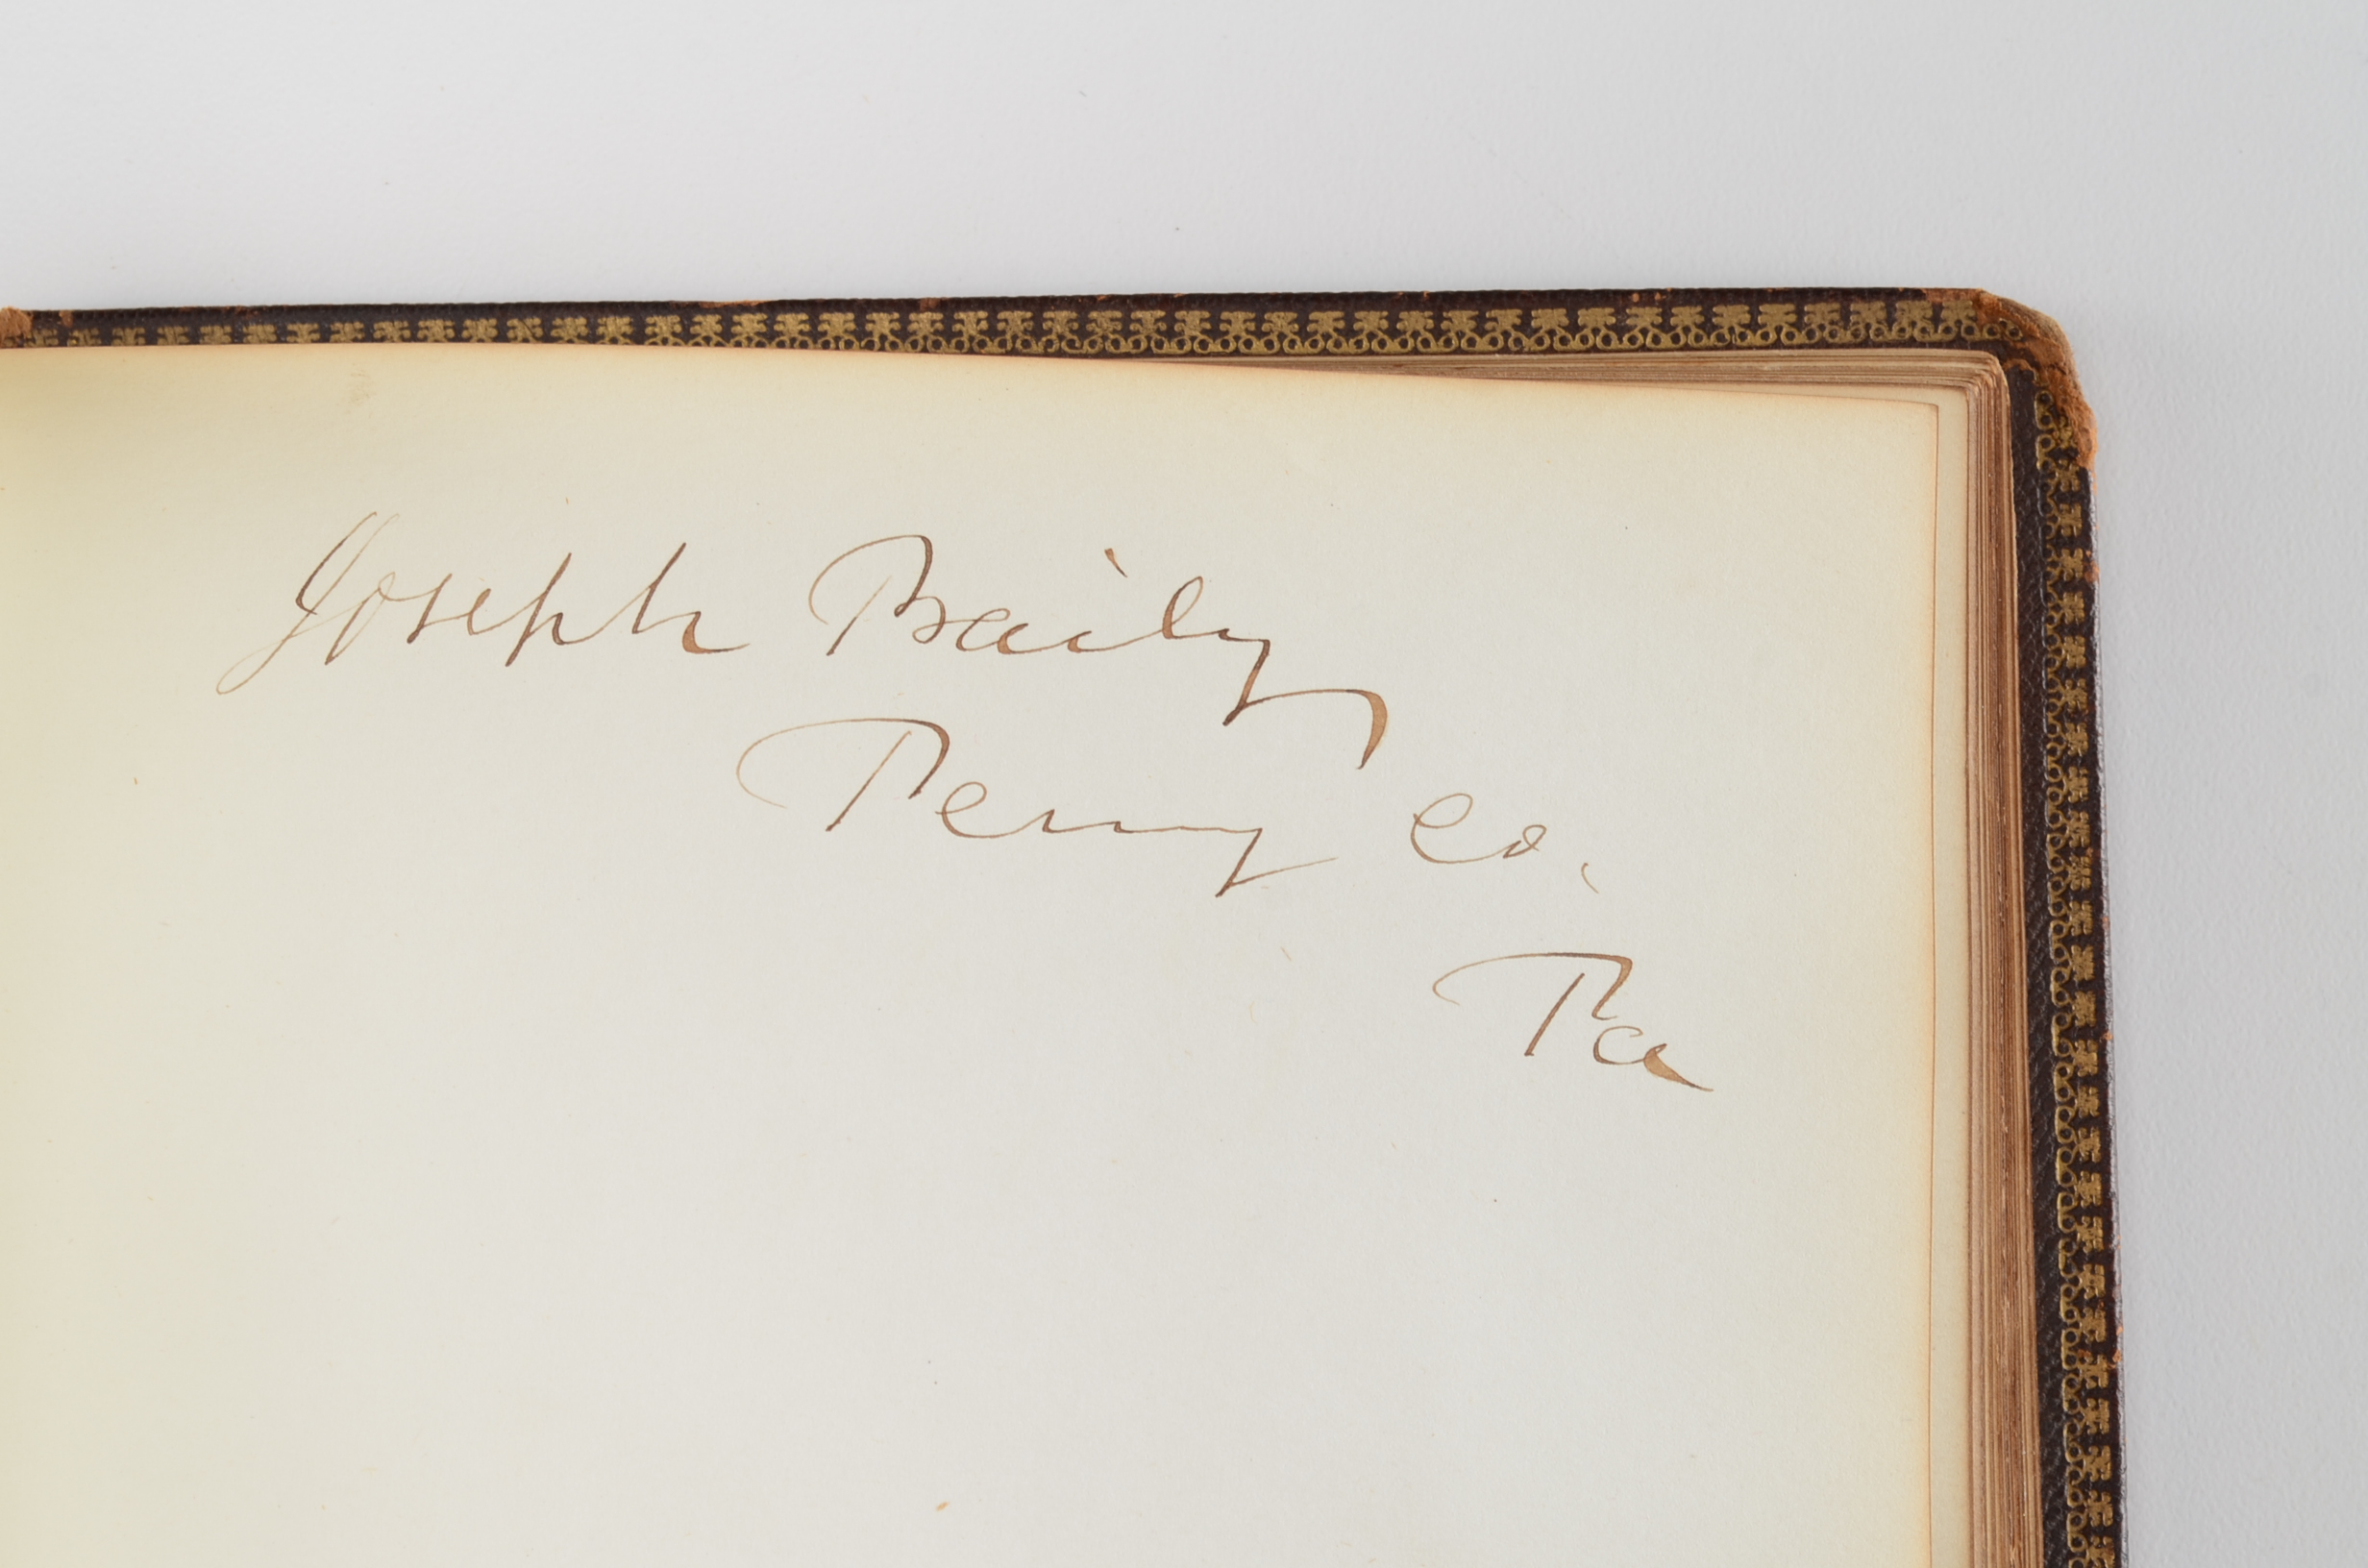 Joseph Baily
Perry Co.
Pa